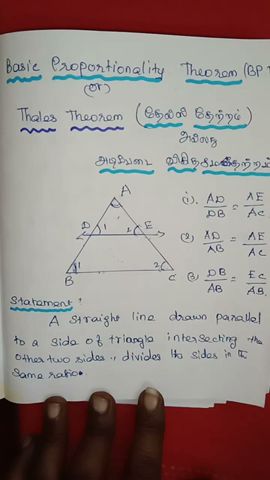 Basic Proportionality Theorem (BP
(or)
Thales Theorem (தேல்ஸ் தேற்றம்)
அல்லது
அடிப்படை விகிதசமதேற்றம்
A
D 1 2 E
B 1 2 C
i). AD/DB = AE/AC
(2) AD/AB = AE/AC
(3) DB/AB = EC/AB.
Statement :
A straight line drawn parallel
to a side of triangle intersecting the
other two sides, divides the sides in the
same ratio.